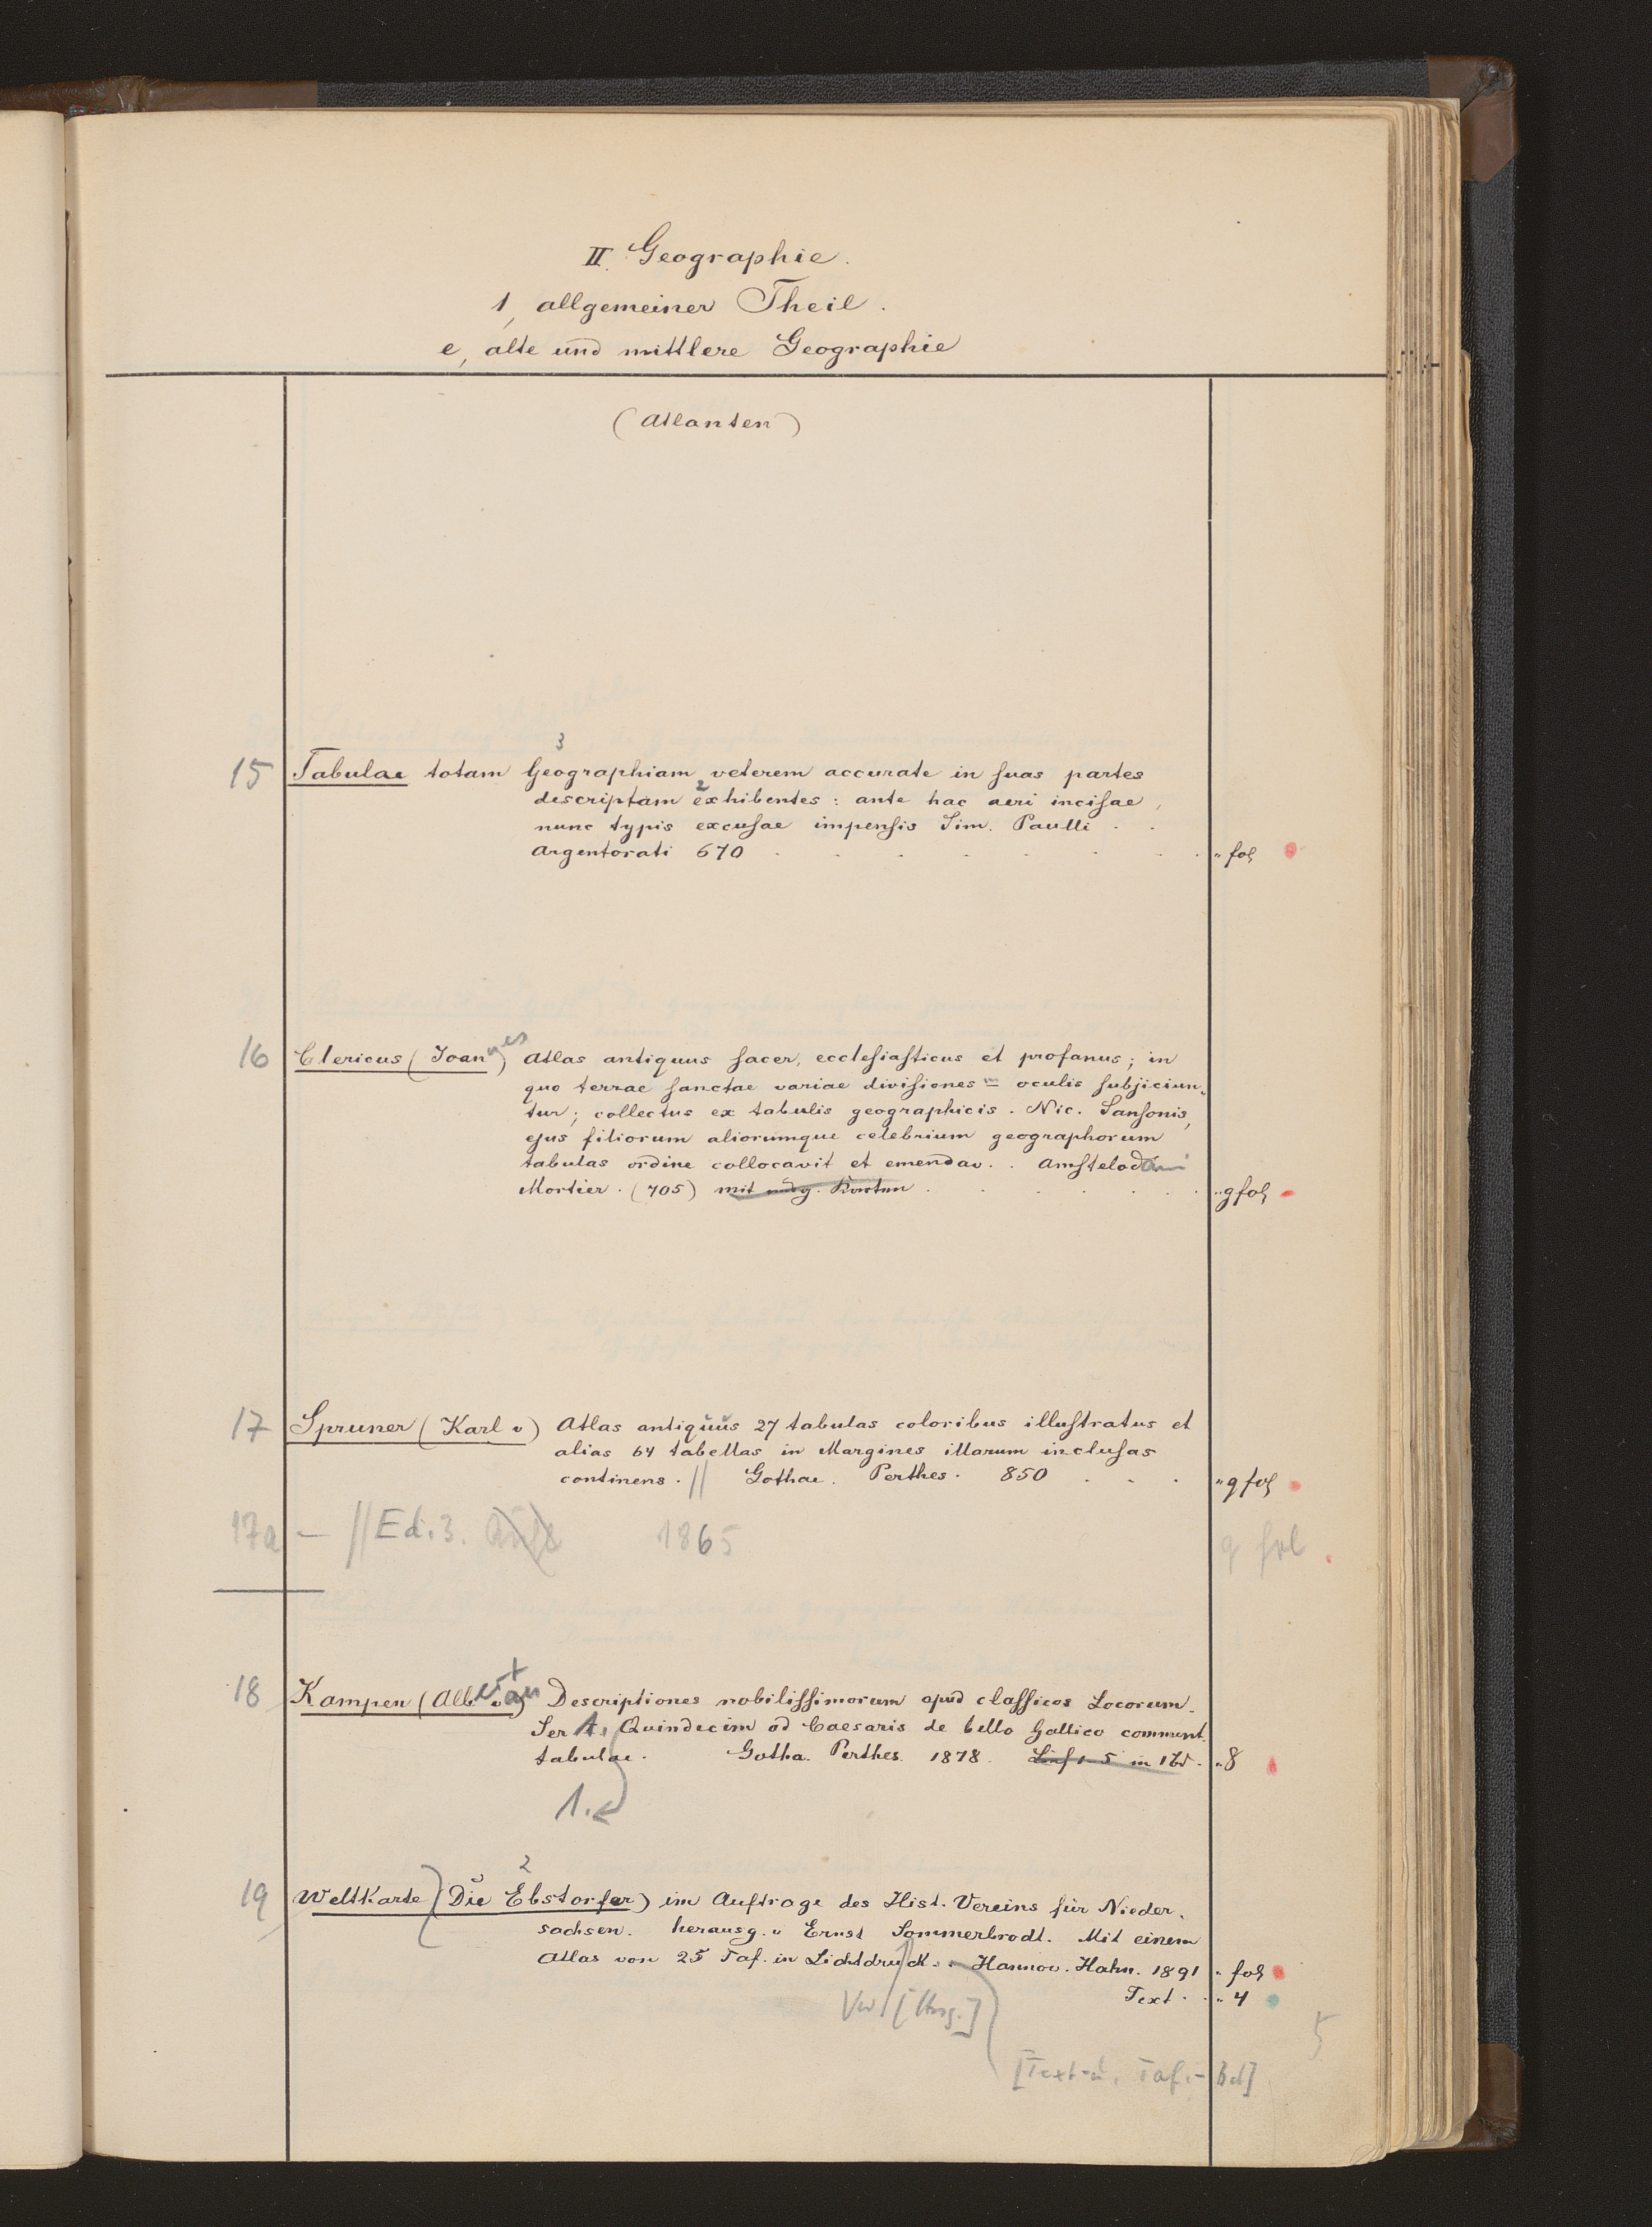 II. Geographie.
1, allgemeiner Theil.
e, alte und mittlere Geographie
(Atlanten)
3
15 Tabulae totam Geographiam veterem accurate in suas partes
2
descriptam exhibentes: ante hac aeri incisae,
nunc typis excusae impensis Sim. Paulli . .
Argentorati 670 . . . . . . . " fol
16 Clericus (Joannes) Atlas antiquus sacer, ecclesiasticus et profanus; in
quo terrae sanctae variae divisiones = oculis subjiciun-
tur; collectus ex tabulis geographicis. Nic. Sansonis,
ejus filiorum aliorumque celebrium geographorum
tabulas ordine collocavit et emendav. . Amstelodami
Mortier. (705) mit Karten . . . . . " gfol
17 Spruner (Karl v) Atlas antiquus 27 tabulas coloribus illustratus et
alias 64 tabellas in Margines illarum inclusas
continens. // Gothae. Perthes. 850 . . . " gfol
17a — // Ed. 3. Aufl 1865 g fol
18 Kampen (Albert van) Descriptiones nobilissimorum apud classicos Locorum.
Ser 1. Quindecim ad Caesaris de bello Gallico comment.
tabulae. Gotha. Perthes. 1878. Lief 1-5 in 1 Bd. " 8
1.
2
19 Weltkarte (Die Ebstorfer) im Auftrage des Hist. Vereins für Nieder-
sachsen. herausg. v Ernst Sommerbrodt. Mit einem
Atlas von 25 Taf. in Lichtdruck. . Hannov. Hahn. 1891 " fol
Text . . " 4
[Hrsg.]
5
[Text- u. Taf.-Bd]